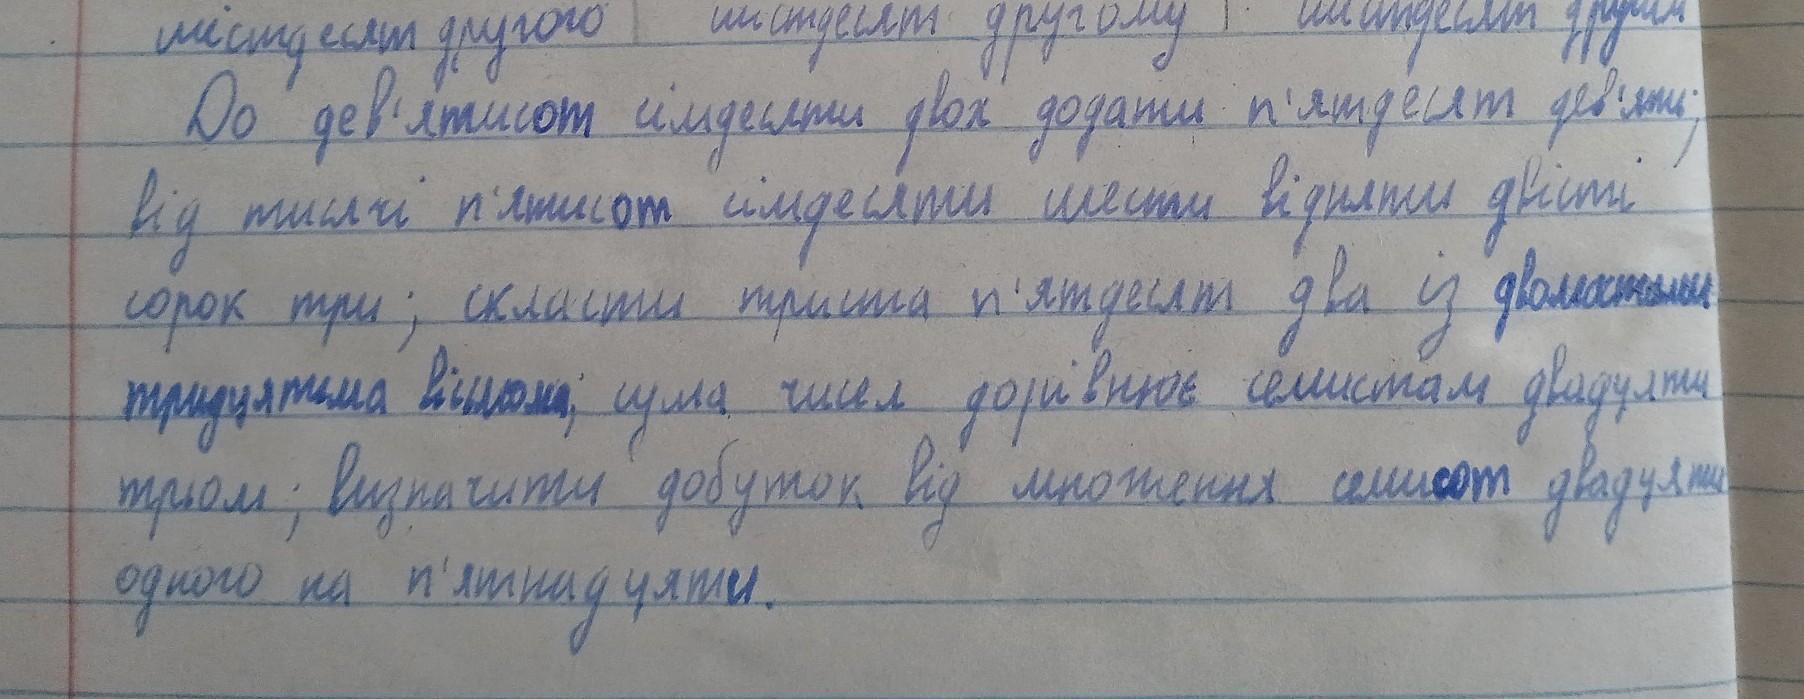 шістдесят другого | шістдесят другому | шістдесят другим
До дев'ятисот сімдесяти двох додати п'ятдесят дев'ять;
від тисячі п'ятисот сімдесяти шести відняти двісті
сорок три; скласти триста п'ятдесят два із двомастами
тридцятьма вісьмома; сума чисел дорівнює семистам двадцяти
трьом; визначити добуток від множення семисот двадцяти
одного на п'ятнадцяти.